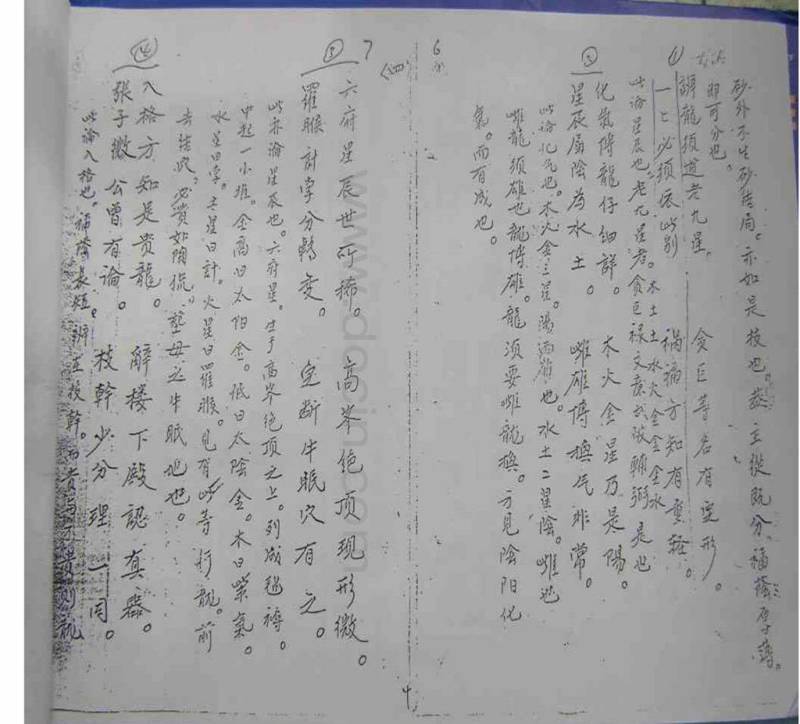 砂外不生砂结局。亦如是枝也。主從既分、福蔭厚薄。
即可分也。
辨龍須道老九星。 貪巨等名有定形。
一七必須依此别 禍福方知有重轻。
此論星辰也。老九星者。貪巨禄文廉武破輔弼是也
木土土水火金金金水
化氣博龍仔细詳。 木火金星乃是陽。
星辰属陰為水土。 雌雄博换气非常。
此論化气也。木火金三星。陽而雄也。水土二星陰。雌也
雌龍须雄也龍博雄。龍须要雌龍换。方見陰阳化
氣。而有成也。
6
7
(四)
③
六府星辰世所稀。 高峯绝顶现形微。
羅睺計孛分轉变。 定断牛眠穴有之。
此亦論星辰也。六府星。生于高峯绝顶之上。列成
中起一小堆。金高曰太阳金。低曰太陰金。木曰紫氣。
水星曰孛。土星曰計。火星曰羅睺。見有此等行龍。前
去结穴。必贵如陶侃。塟母之牛眠地也。
④
入格方知是贵龍。 解樓下殿認真器。
張子微公曾有論。 枝幹少分理一同。
此論入格也。福蔭長短。辨在枝幹。
www.docin.com